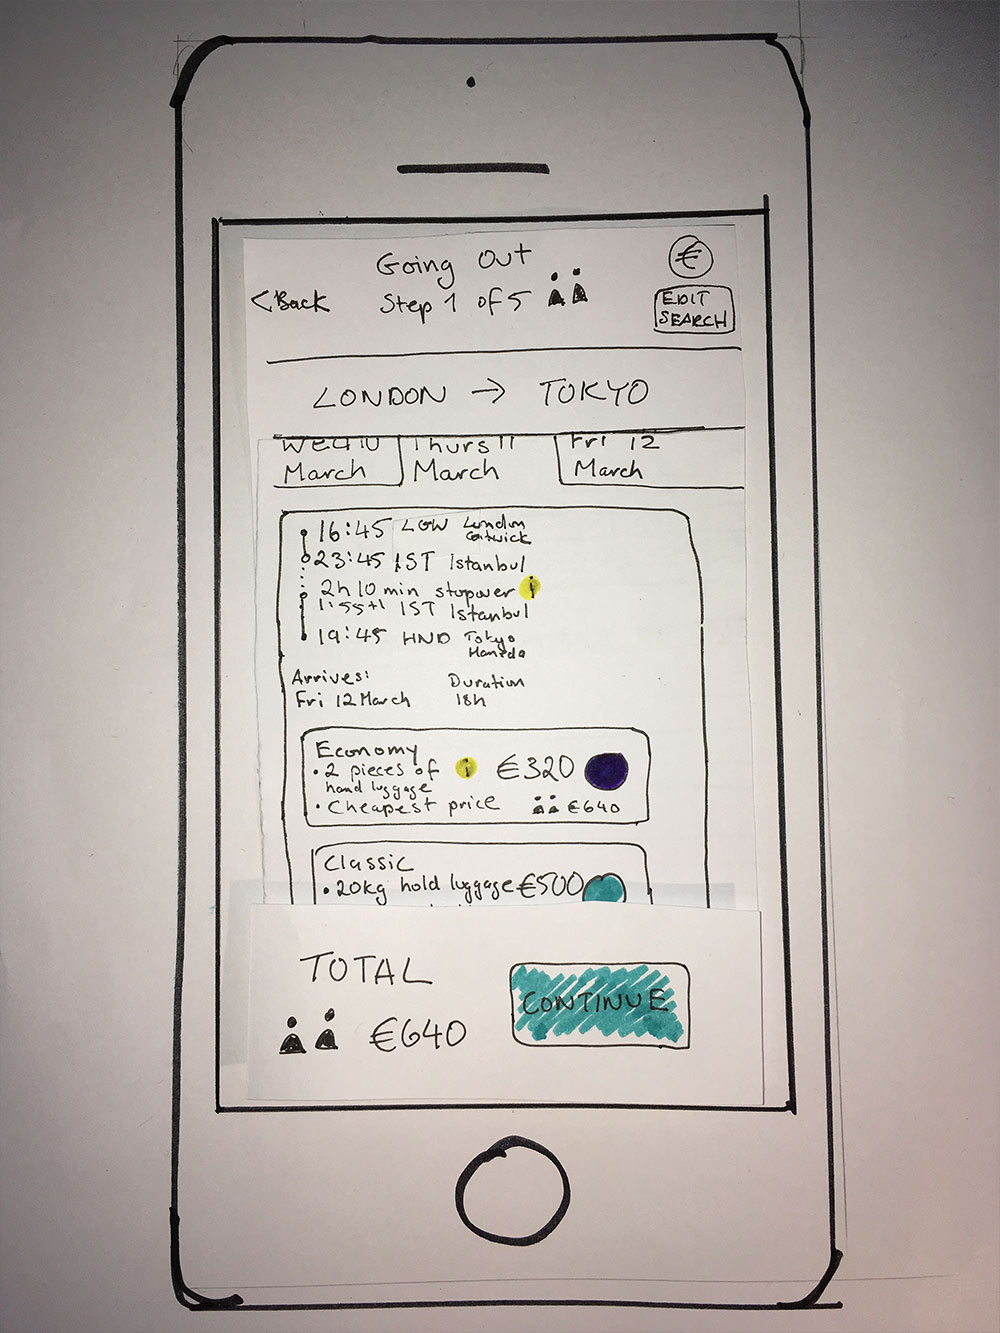 Going Out
<Back
Step 1 of 5
€
EDIT
SEARCH
LONDON → TOKYO
Wed 10
March
Thurs 11
March
Fri 12
March
16:45 LGW London
Gatwick
23:45 IST Istanbul
2h 10 min stopover i
1:55+1 IST Istanbul
19:45 HND Tokyo
Haneda
Arrives:
Fri 12 March
Duration
18h
Economy
• 2 pieces of
hand luggage
i
• Cheapest price
€320
€640
Classic
• 20kg hold luggage €500
TOTAL
€640
CONTINUE